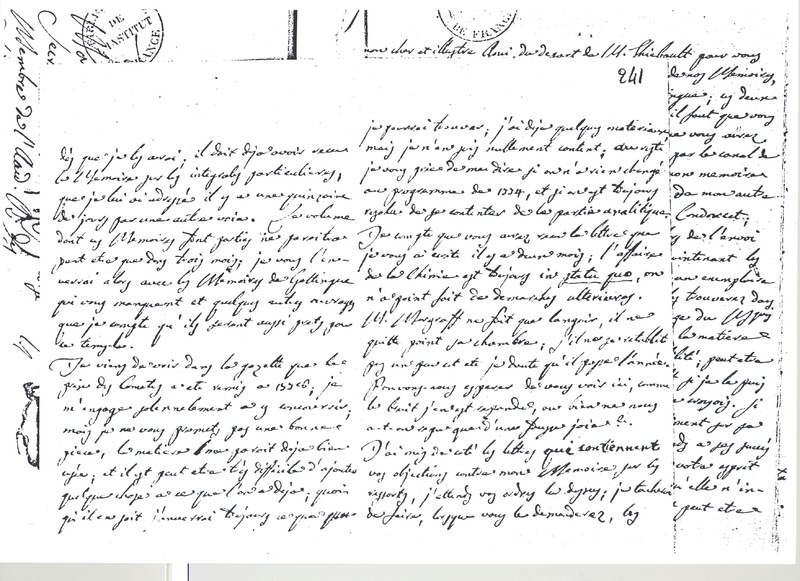 mon cher et illustre Ami, du depart de M. Thiebault pour vous
241
dès que je les aurai; il doit deja avoir reçu
le Memoire sur les integrales particulieres,
que je lui ai adressé il y a une quinzaine
de jours par une autre voie. Le volume
dont ces Memoires font partie ne paroitra
peut etre que dans trois mois; je vous l'en-
verrai alors avec les Memoires de Gottingue
qui vous manquent et quelques autres ouvrages
que je compte qu'ils seront aussi prets pour
ce temps la.
Je viens de voir dans la gazette que le
prix des Cometes a eté remis a
je
m'engage solennelement a y concourir;
mais je ne vous promets pas une bonne
piece, la matiere me paroit deja bien
usée; et il est peut etre tres difficile d'ajouter
quelque chose a ce que l'on a deja; quoi
qu'il en soit j'enverrai toujours ce que
je pourrai trouver; j'ai deja quelques materiaux
mais je n'en suis nullement content; au reste
je vous prie de me dire si on n'a rien changé
au programme de 1774, et si on est toujours
resolu de se contenter de la partie analitique.
Je compte que vous aurez reçu la lettre que
je vous ai ecrite il y a un mois; l'affaire
de la Chimie est toujours in statu quo, on
n'a point fait de demarches ulterieures.
M. Margraff ne fait que languir, il ne
quitte point sa chambre; s'il ne se retablit
pas un peu cet eté je doute qu'il passe l'année.
Pouvons-nous esperer de vous voir ici, comme
le bruit s'en est repandu, ou bien ne nous
a-t-on regalé que d'une fausse joie?
J'ai mis de coté les lettres qui contiennent
vos objections contre mon Memoire sur les
ressorts, j'attends vos ordres la dessus; je tacherai
de faire, lorsque vous le demanderez, les
de nos Memoires,
ces deux
il faut que vous
par le canal de
mon memoire
de mon autre
Condorcet;
de l'envoi
maintenant les
un exemplaire
trouverez dans
la matiere
peut etre
si je le puis
si
peut etre